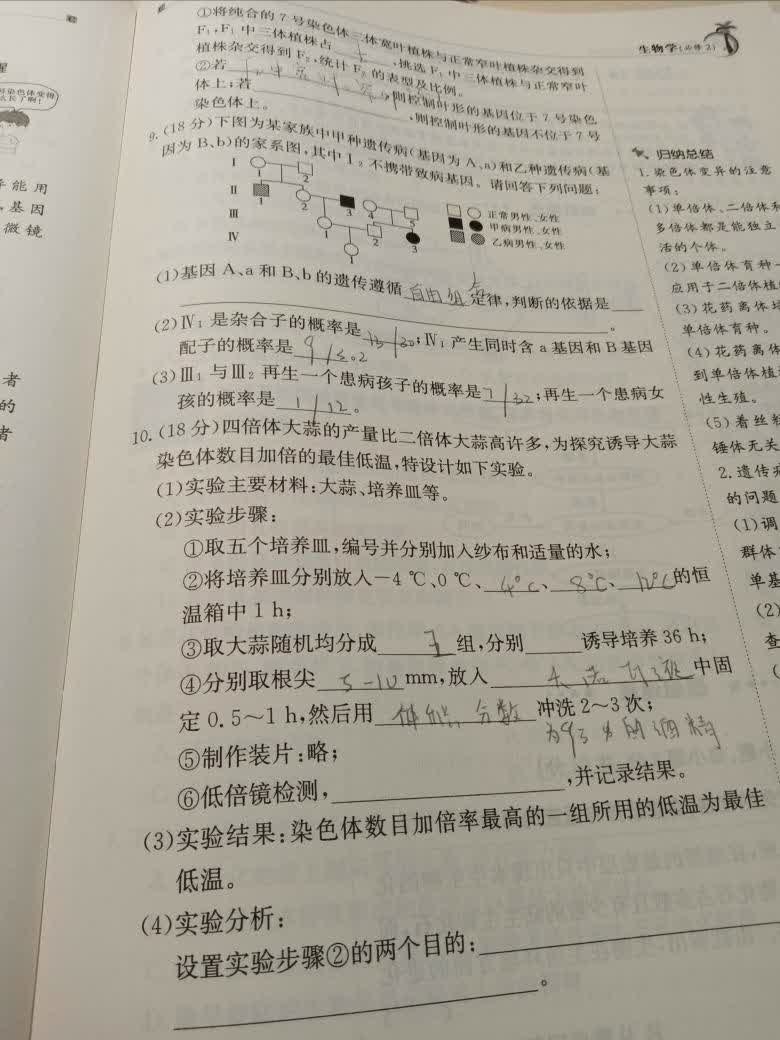 生物学(必修2)
①将纯合的7号染色体三体宽叶植株与正常窄叶植株杂交得到
F₁,F₁中三体植株占,挑选F₁中三体植株与正常窄叶
植株杂交得到F₂,统计F₂的表型及比例。
②若,则控制叶形的基因位于7号染色
体上;若,则控制叶形的基因不位于7号
染色体上。
9.(18分)下图为某家族中甲种遗传病(基因为A、a)和乙种遗传病(基
因为B、b)的家系图,其中Ⅰ₂不携带致病基因。请回答下列问题:
Ⅰ 1 2
Ⅱ 1 2 3 4 5
Ⅲ 1 2 3
Ⅳ 1
正常男性、女性
甲病男性、女性
乙病男性、女性
(1)基因A、a和B、b的遗传遵循自由组合定律,判断的依据是
。
(2)Ⅳ₁是杂合子的概率是;Ⅳ₁产生同时含a基因和B基因
配子的概率是。
(3)Ⅲ₁与Ⅲ₂再生一个患病孩子的概率是7/32;再生一个患病女
孩的概率是1/12。
10.(18分)四倍体大蒜的产量比二倍体大蒜高许多,为探究诱导大蒜
染色体数目加倍的最佳低温,特设计如下实验。
(1)实验主要材料:大蒜、培养皿等。
(2)实验步骤:
①取五个培养皿,编号并分别加入纱布和适量的水;
②将培养皿分别放入-4 ℃、0 ℃、4℃、8℃、12℃的恒
温箱中1 h;
③取大蒜随机均分成五组,分别诱导培养36 h;
④分别取根尖5-10mm,放入卡诺氏液中固
定0.5~1 h,然后用体积分数冲洗2~3次;
为95%的酒精
⑤制作装片:略;
⑥低倍镜检测,,并记录结果。
(3)实验结果:染色体数目加倍率最高的一组所用的低温为最佳
低温。
(4)实验分析:
设置实验步骤②的两个目的:
。
归纳总结
1.染色体变异的注意
事项:
(1)单倍体、二倍体和
多倍体都是能独立
活的个体。
(2)单倍体育种
应用于二倍体植
(3)花药离体培
单倍体育种。
(4)花药离体
到单倍体植
性生殖。
(5)着丝粒
锤体无关
2.遗传
的问题
(1)调
群体
单基
(2)
查
能用
基因
微镜
者
的
者